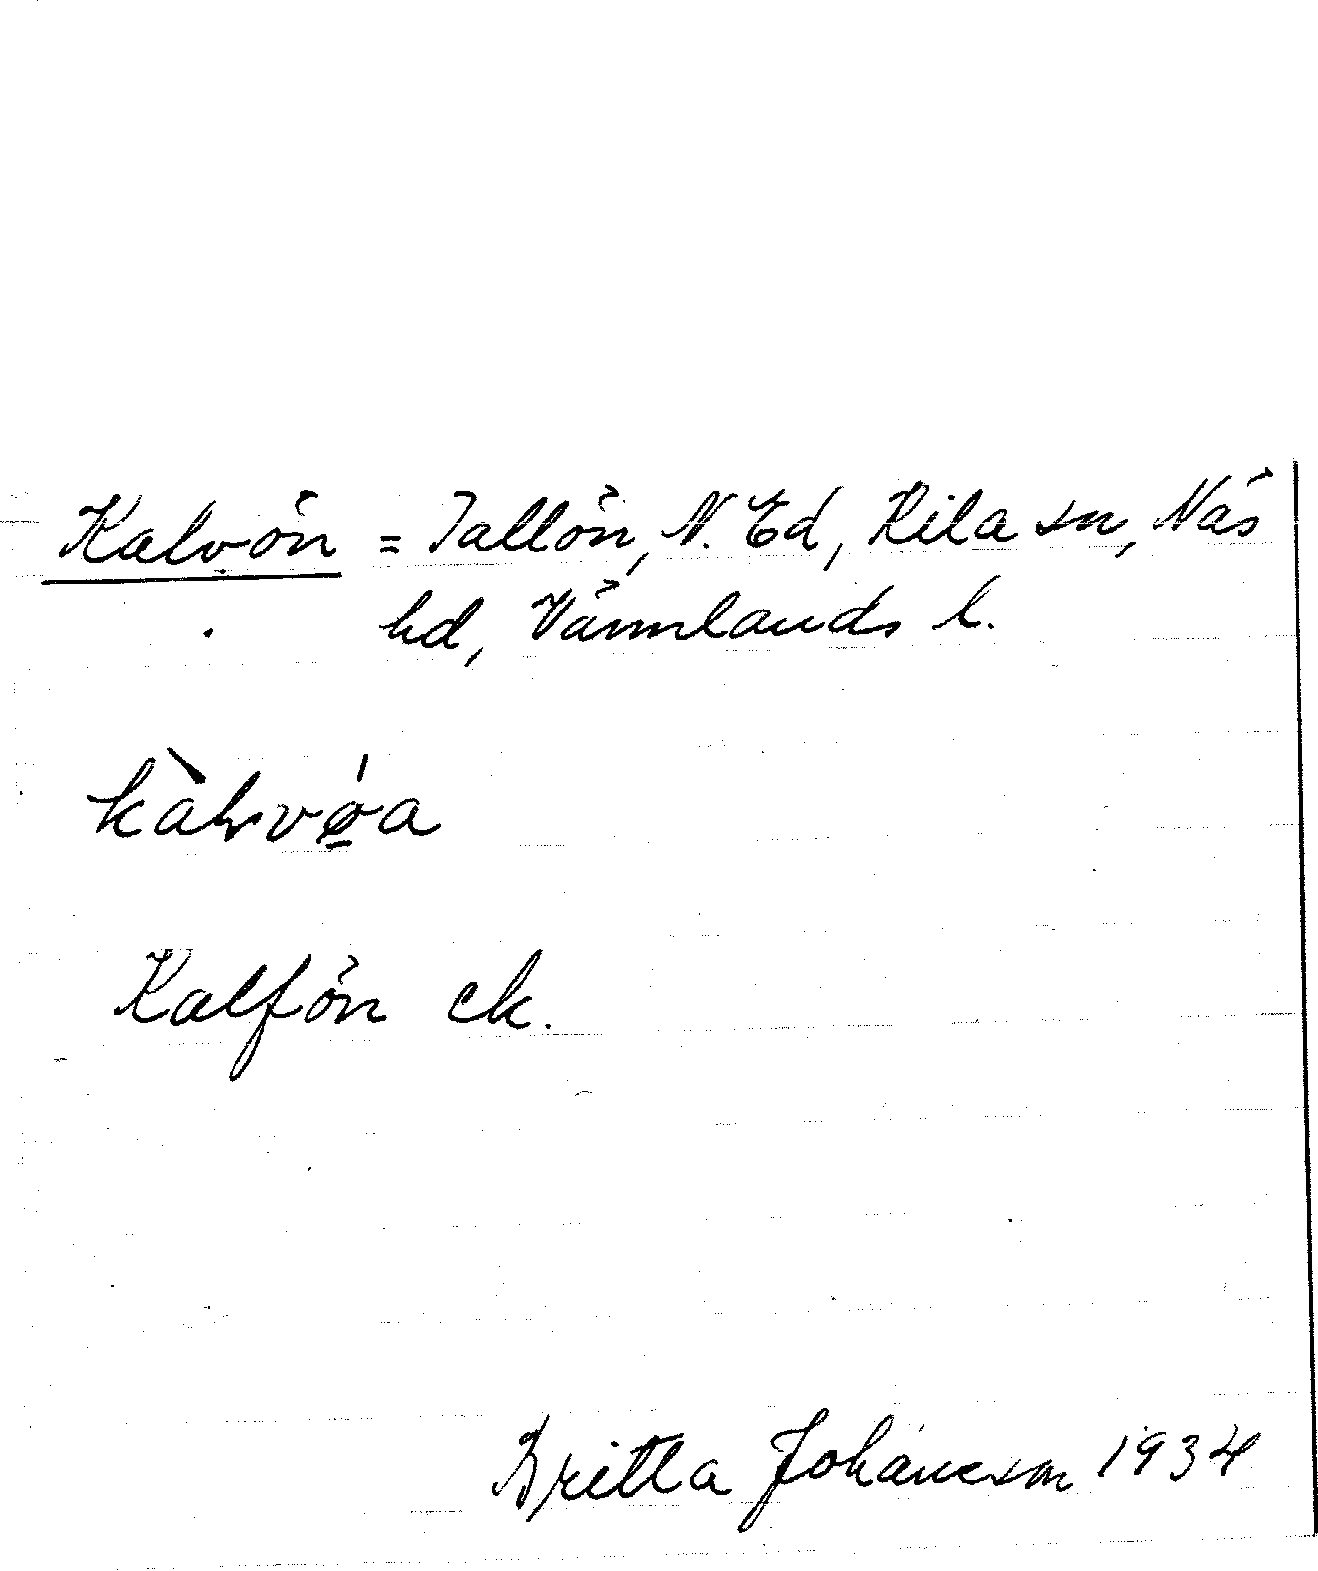 Kalvön = Tallön, N. Ed, Kila sn, Näs
hd, Värmlands l.
kàlvǿ̱a
Kalfön ek.
Britta Johansson 1934